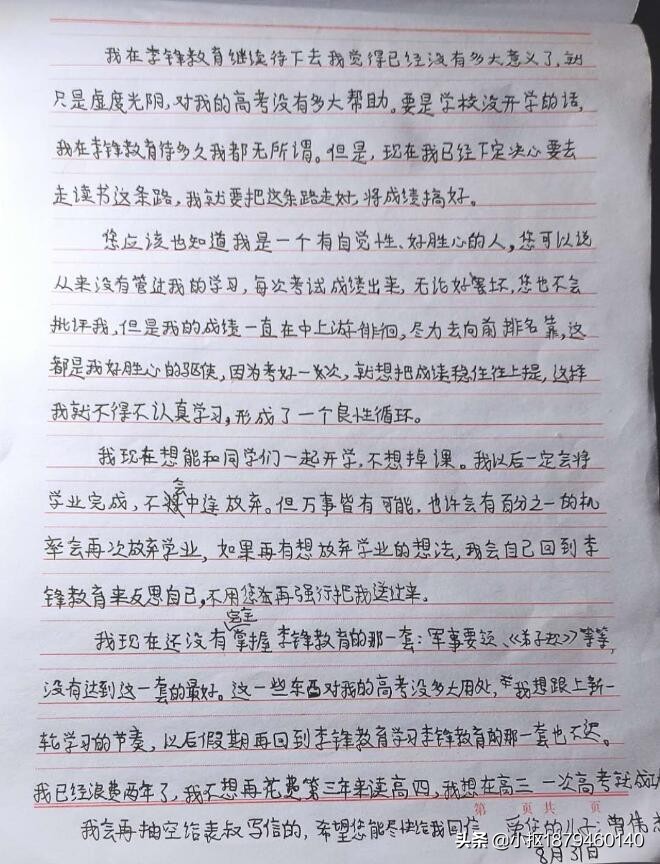 我在李锋教育继续待下去我觉得已经没有多大意义了,就
只是虚度光阴,对我的高考没有多大帮助。要是学校没开学的话,
我在李锋教育待多久我都无所谓。但是,现在我已经下定决心要去
走读书这条路,我就要把这条路走好,将成绩搞好。
您应该也知道我是一个有自觉性、好胜心的人,您可以说
从来没有管过我的学习,每次考试成绩出来,无论好坏,您也不会
批评我,但是我的成绩一直在中上游徘徊,尽力去向前排名靠,这
都是我好胜心的驱使,因为考好一次,就想把成绩稳住往上提,这样
我就不得不认真学习,形成了一个良性循环。
我现在想能和同学们一起开学,不想掉课。我以后一定会将
学业完成,不会中途放弃。但万事皆有可能,也许会有百分之一的机
率会再次放弃学业,如果再有想放弃学业的想法,我会自己回到李
锋教育来反思自己,不用您再强行把我送过来。
我现在还没有完全掌握李锋教育的那一套:军事要领、《弟子规》等等,
没有达到这一套的最好。这一些东西对我的高考没多大用处,我想跟上新一
轮学习的节奏,以后假期再回到李锋教育学习李锋教育的那一套也不迟。
我已经浪费两年了,我不想再花费第三年来读高四,我想在高三一次高考就成功
第 页 共 页
我会再抽空给表叔写信的,希望您能尽快给我回信
您的儿子:曾伟
8月31日
头条 @小抠1879460140